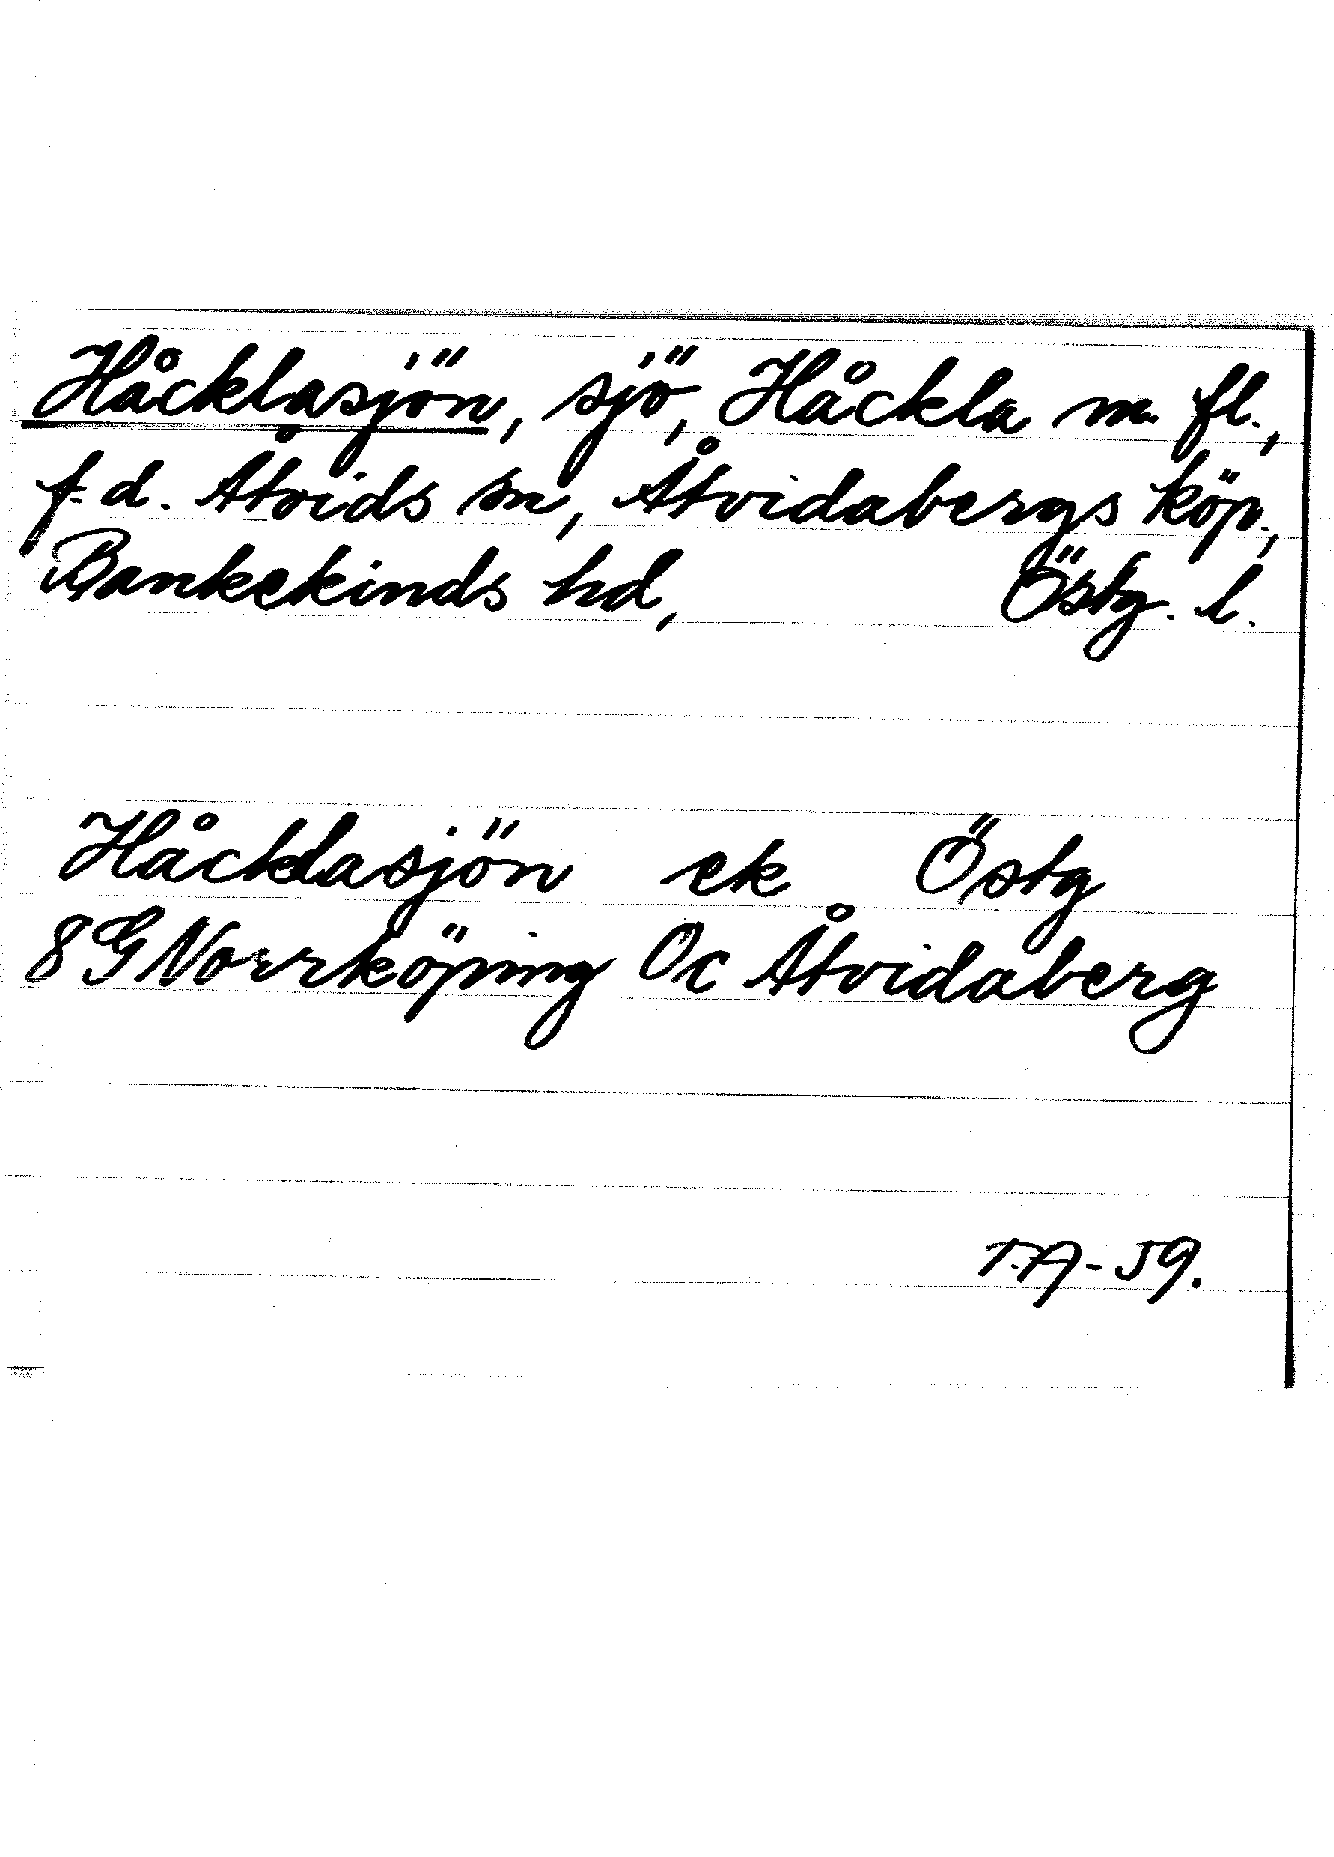 Håcklasjön, sjö, Håckla m. fl.,
f. d. Åtvids sn, Åtvidabergs köp.,
Bankekinds hd, Östg. l.
Håcklasjön ek Östg
8G Norrköping Oc Åtvidaberg
T.A-59.